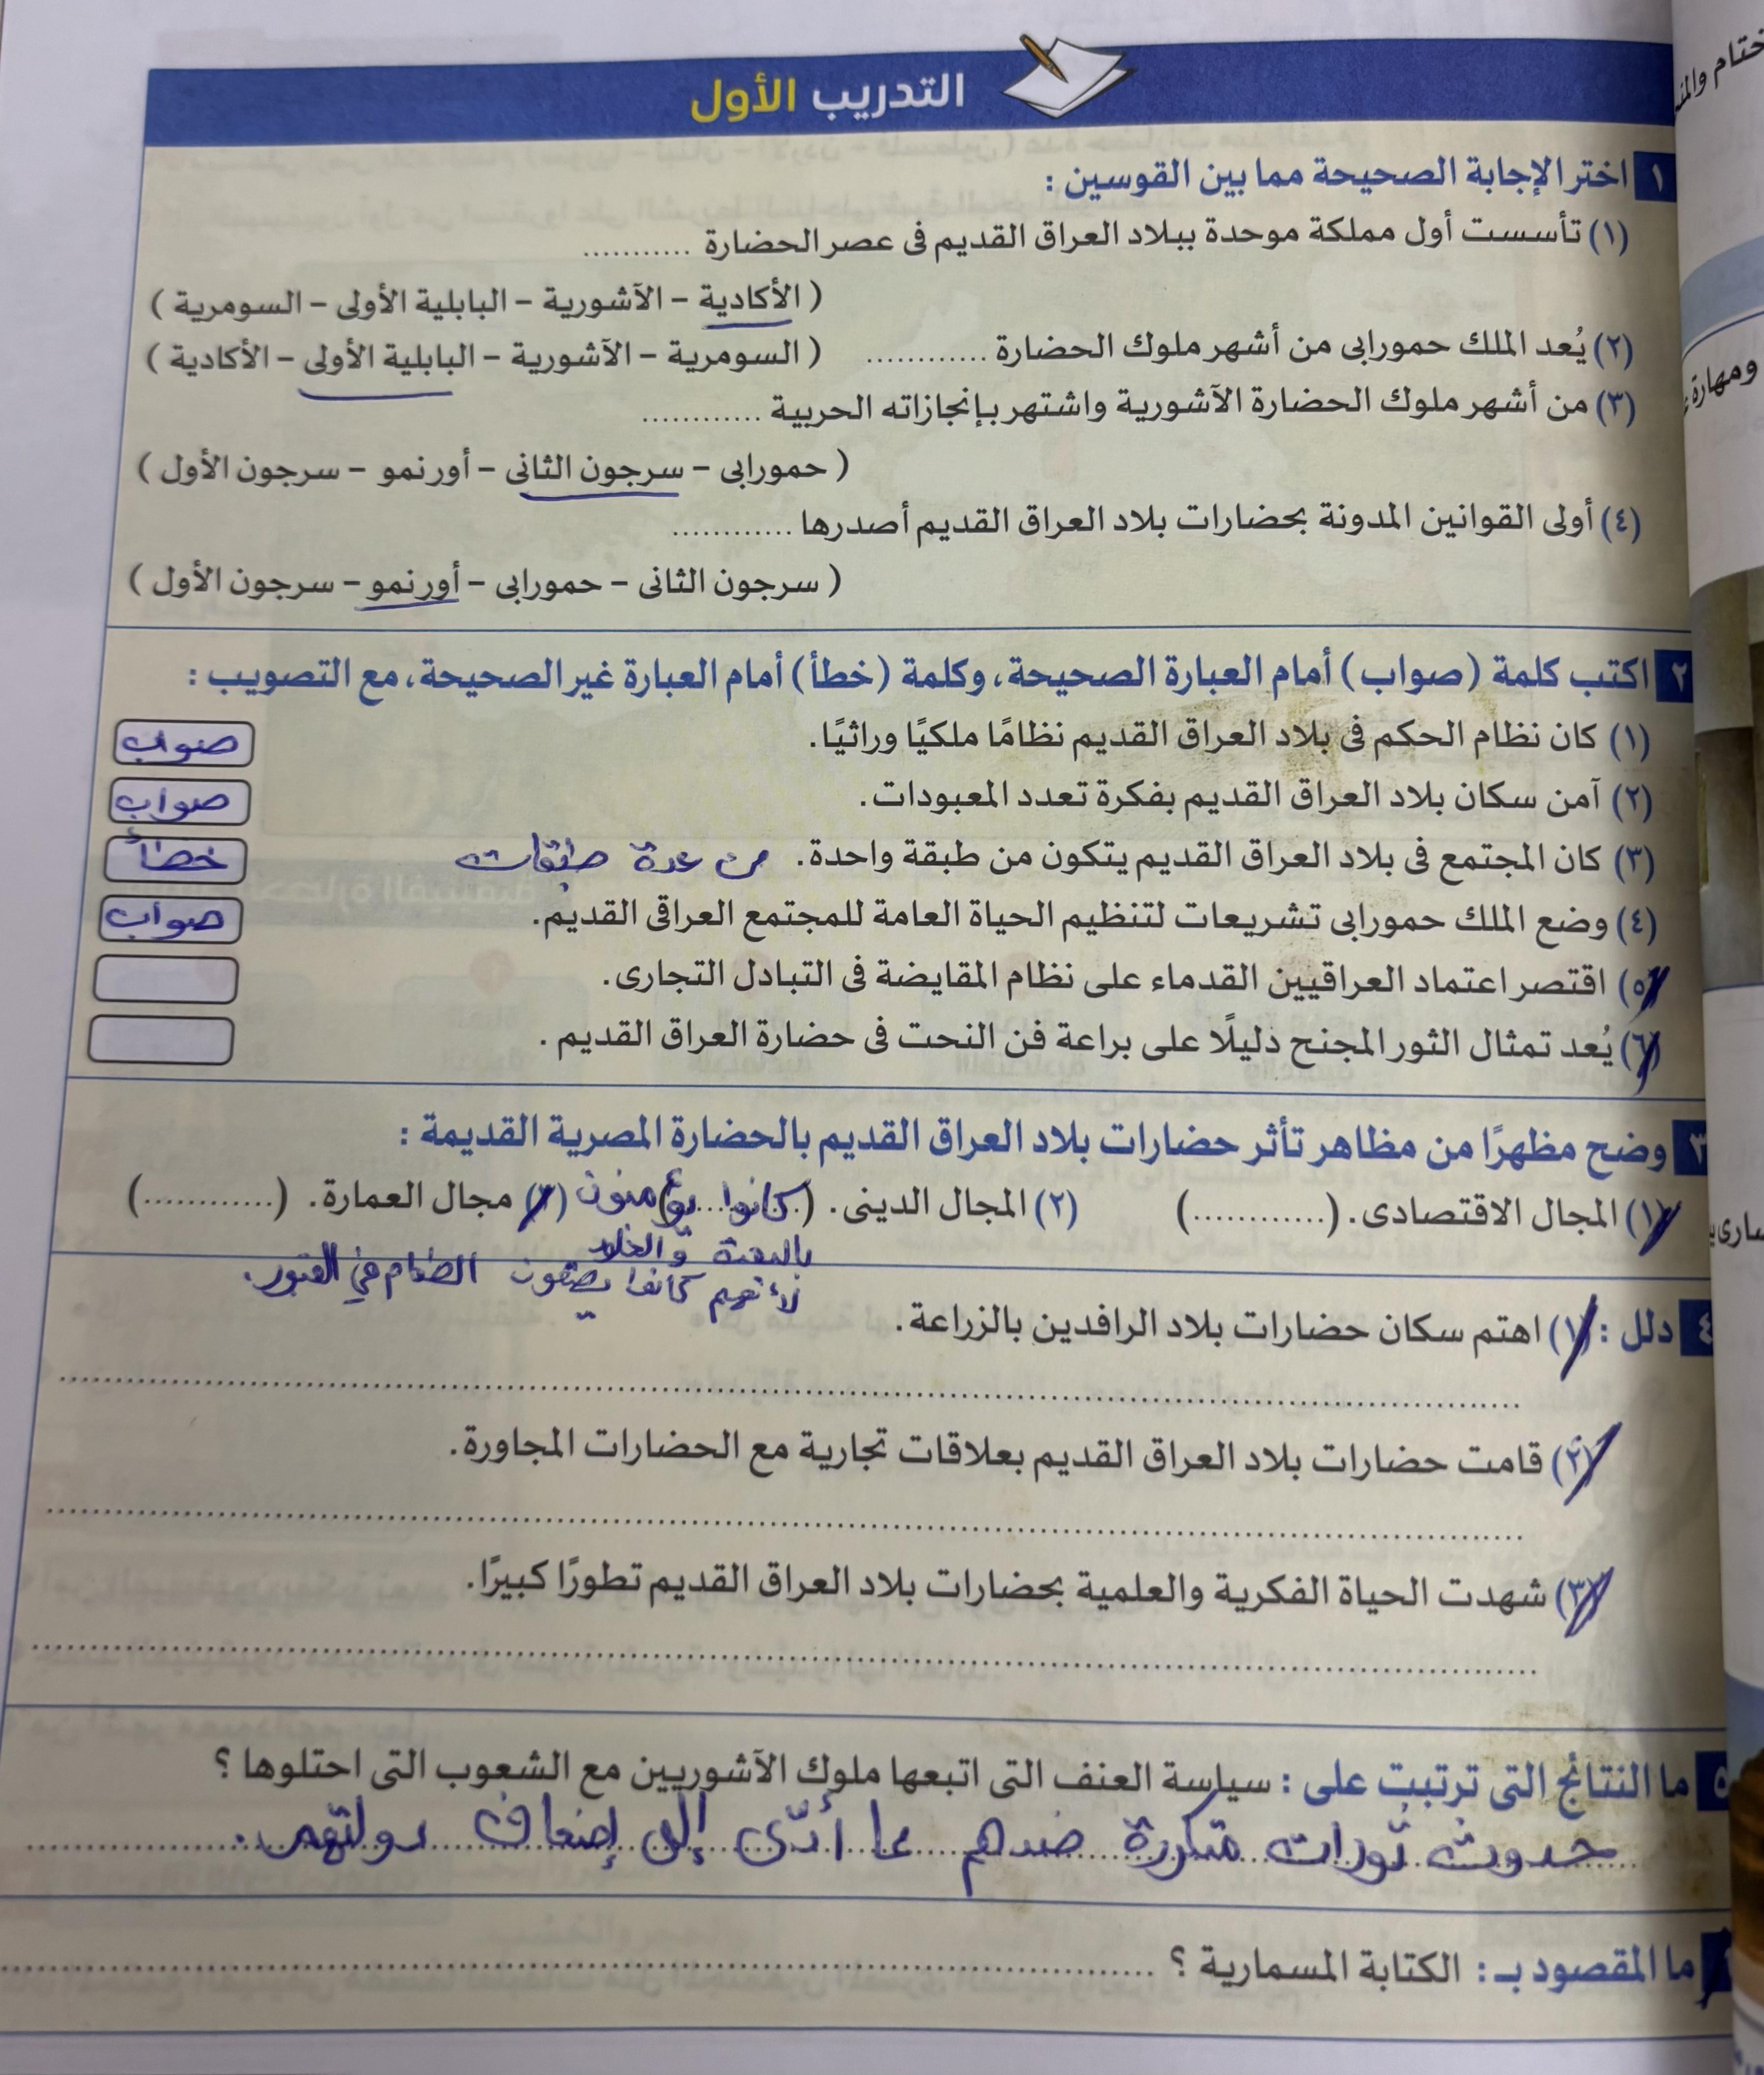 التدريب الأول
١ اختر الإجابة الصحيحة مما بين القوسين :
(١) تأسست أول مملكة موحدة ببلاد العراق القديم فى عصر الحضارة ............
( الأكادية – الآشورية – البابلية الأولى – السومرية )
(٢) يُعد الملك حمورابى من أشهر ملوك الحضارة ............ ( السومرية – الآشورية – البابلية الأولى – الأكادية )
(٣) من أشهر ملوك الحضارة الآشورية واشتهر بإنجازاته الحربية ............
( حمورابى – سرجون الثانى – أورنمو – سرجون الأول )
(٤) أولى القوانين المدونة بحضارات بلاد العراق القديم أصدرها ............
( سرجون الثانى – حمورابى – أورنمو – سرجون الأول )
٢ اكتب كلمة (صواب) أمام العبارة الصحيحة، وكلمة (خطأ) أمام العبارة غير الصحيحة، مع التصويب :
(١) كان نظام الحكم فى بلاد العراق القديم نظامًا ملكيًا وراثيًا. صواب
(٢) آمن سكان بلاد العراق القديم بفكرة تعدد المعبودات. صواب
(٣) كان المجتمع فى بلاد العراق القديم يتكون من طبقة واحدة. من عدة طبقات خطأ
(٤) وضع الملك حمورابى تشريعات لتنظيم الحياة العامة للمجتمع العراقى القديم. صواب
(٥) اقتصر اعتماد العراقيين القدماء على نظام المقايضة فى التبادل التجارى.
(٦) يُعد تمثال الثور المجنح دليلًا على براعة فن النحت فى حضارة العراق القديم .
٣ وضح مظهرًا من مظاهر تأثر حضارات بلاد العراق القديم بالحضارة المصرية القديمة :
(١) المجال الاقتصادى. (............) (٢) المجال الدينى. (كانوا يؤمنون) (٣) مجال العمارة. (............)
بالبعث والخلد
لأنهم كانوا يضعون الطعام في القبور.
٤ دلل : (١) اهتم سكان حضارات بلاد الرافدين بالزراعة.
(٢) قامت حضارات بلاد العراق القديم بعلاقات تجارية مع الحضارات المجاورة.
(٣) شهدت الحياة الفكرية والعلمية بحضارات بلاد العراق القديم تطورًا كبيرًا.
٥ ما النتائج التى ترتبت على : سياسة العنف التى اتبعها ملوك الآشوريين مع الشعوب التى احتلوها ؟
حدوث ثورات متكررة ضدهم مما أدّى إلى إضعاف دولتهم.
ما المقصود بـ : الكتابة المسمارية ؟
ومهارة